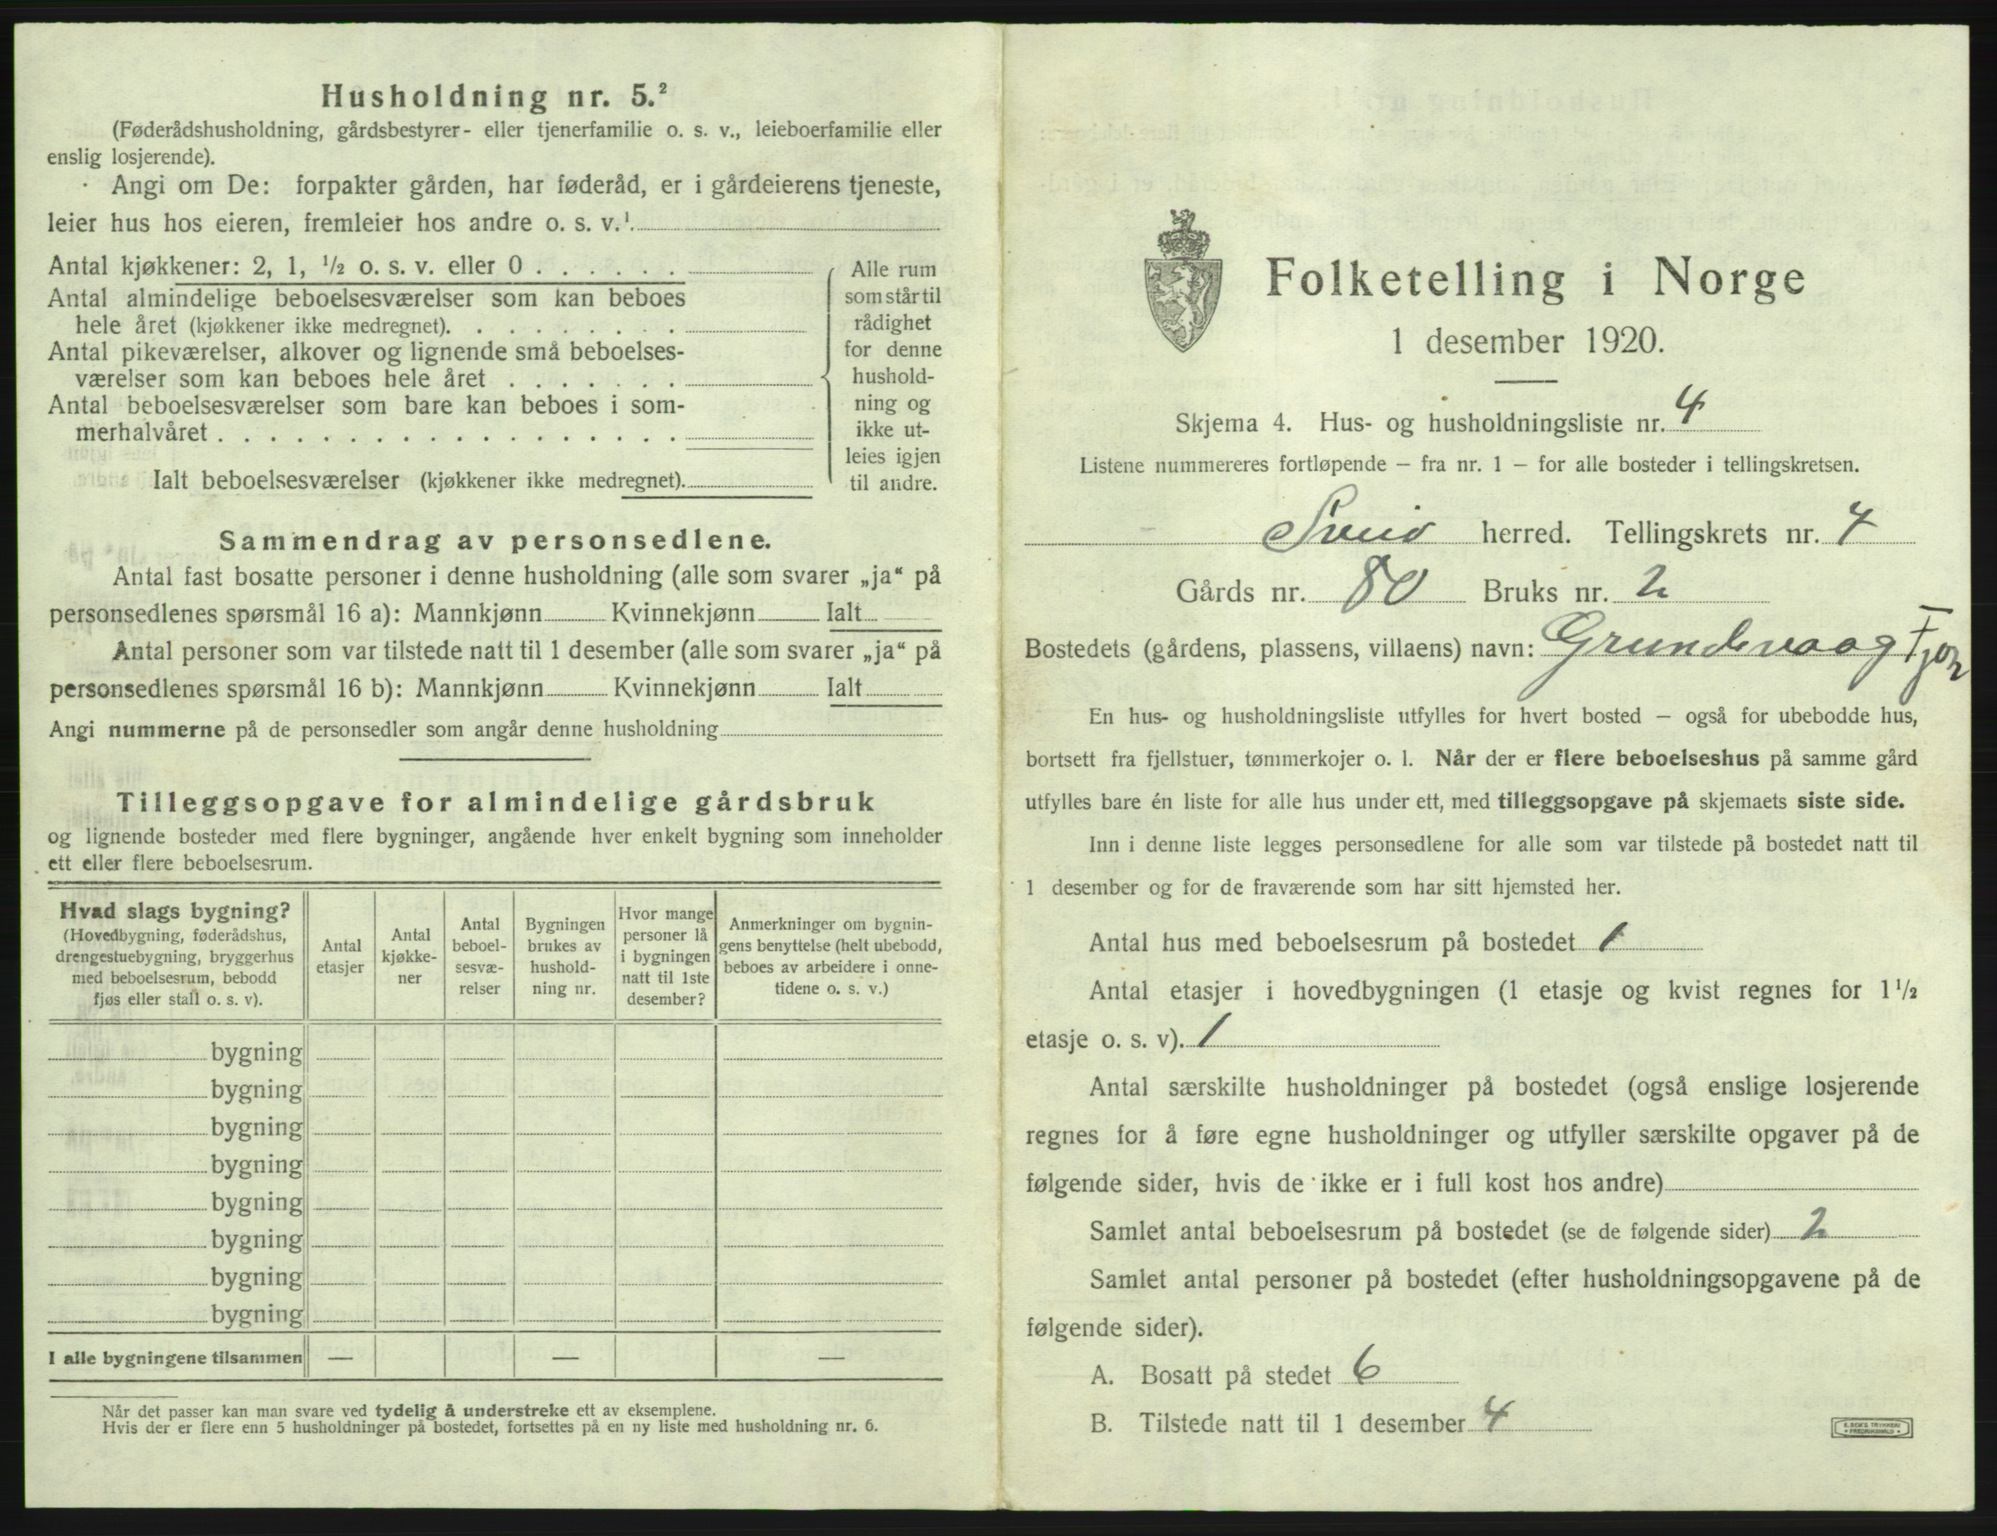 Husholdning nr. 5.²
(Føderådshusholdning, gårdsbestyrer- eller tjenerfamilie o. s. v., leieboerfamilie eller
enslig losjerende).
Angi om De: forpakter gården, har føderåd, er i gårdeierens tjeneste,
leier hus hos eieren, fremleier hos andre o. s. v.¹.
Antal kjøkkener: 2, 1, ½ o. s. v. eller 0 . . . . . .
Antal almindelige beboelsesværelser som kan beboes
hele året (kjøkkener ikke medregnet). . . . . . . . . .
Antal pikeværelser, alkover og lignende små beboelses-
værelser som kan beboes hele året . . . . . . .
Antal beboelsesværelser som bare kan beboes i som-
merhalvåret . . . . . . . . . . . . . . . . . .
Ialt beboelsesværelser (kjøkkener ikke medregnet).
Alle rum
som står til
rådighet
for denne
hushold-
ning og
ikke ut-
leies igjen
til andre.
Sammendrag av personsedlene.
Antal fast bosatte personer i denne husholdning (alle som svarer „ja“ på
personsedlenes spørsmål 16 a): Mannkjønn Kvinnekjønn Ialt
Antal personer som var tilstede natt til 1 desember (alle som svarer „ja“ på
personsedlenes spørsmål 16 b): Mannkjønn Kvinnekjønn Ialt
Angi nummerne på de personsedler som angår denne husholdning
Tilleggsopgave for almindelige gårdsbruk
og lignende bosteder med flere bygninger, angående hver enkelt bygning som inneholder
ett eller flere beboelsesrum.
Hvad slags bygning?
(Hovedbygning, føderådshus,
drengestuebygning, bryggerhus
med beboelsesrum, bebodd
fjøs eller stall o. s. v).
Antal
etasjer
Antal
kjøkke-
ner
Antal
beboel-
sesvæ-
relser
Bygningen
brukes av
hushold-
ning nr.
Hvor mange
personer lå
i bygningen
natt til 1ste
desember?
Anmerkninger om bygnin-
gens benyttelse (helt ubebodd,
beboes av arbeidere i onne-
tidene o. s. v.)
bygning
bygning
bygning
bygning
bygning
bygning
bygning
bygning
I alle bygningene tilsammen — — —
Når det passer kan man svare ved tydelig å understreke ett av eksemplene.
Hvis der er flere enn 5 husholdninger på bostedet, fortsettes på en ny liste med husholdning nr. 6.
Folketelling i Norge
1 desember 1920.
Skjema 4. Hus- og husholdningsliste nr. 4
Listene nummereres fortløpende – fra nr. 1 – for alle bosteder i tellingskretsen.
Sveio herred. Tellingskrets nr. 4
Gårds nr. 80 Bruks nr. 2
Bostedets (gårdens, plassens, villaens) navn: Grundevaag Fjon
En hus- og husholdningsliste utfylles for hvert bosted – også for ubebodde hus,
bortsett fra fjellstuer, tømmerkojer o. l. Når der er flere beboelseshus på samme gård
utfylles bare én liste for alle hus under ett, med tilleggsopgave på skjemaets siste side.
Inn i denne liste legges personsedlene for alle som var tilstede på bostedet natt til
1 desember og for de fraværende som har sitt hjemsted her.
Antal hus med beboelsesrum på bostedet 1
Antal etasjer i hovedbygningen (1 etasje og kvist regnes for 1½
etasje o. s. v). 1
Antal særskilte husholdninger på bostedet (også enslige losjerende
regnes for å føre egne husholdninger og utfyller særskilte opgaver på de
følgende sider, hvis de ikke er i full kost hos andre)
Samlet antal beboelsesrum på bostedet (se de følgende sider) 2
Samlet antal personer på bostedet (efter husholdningsopgavene på de
følgende sider).
A. Bosatt på stedet 6
B. Tilstede natt til 1 desember 4